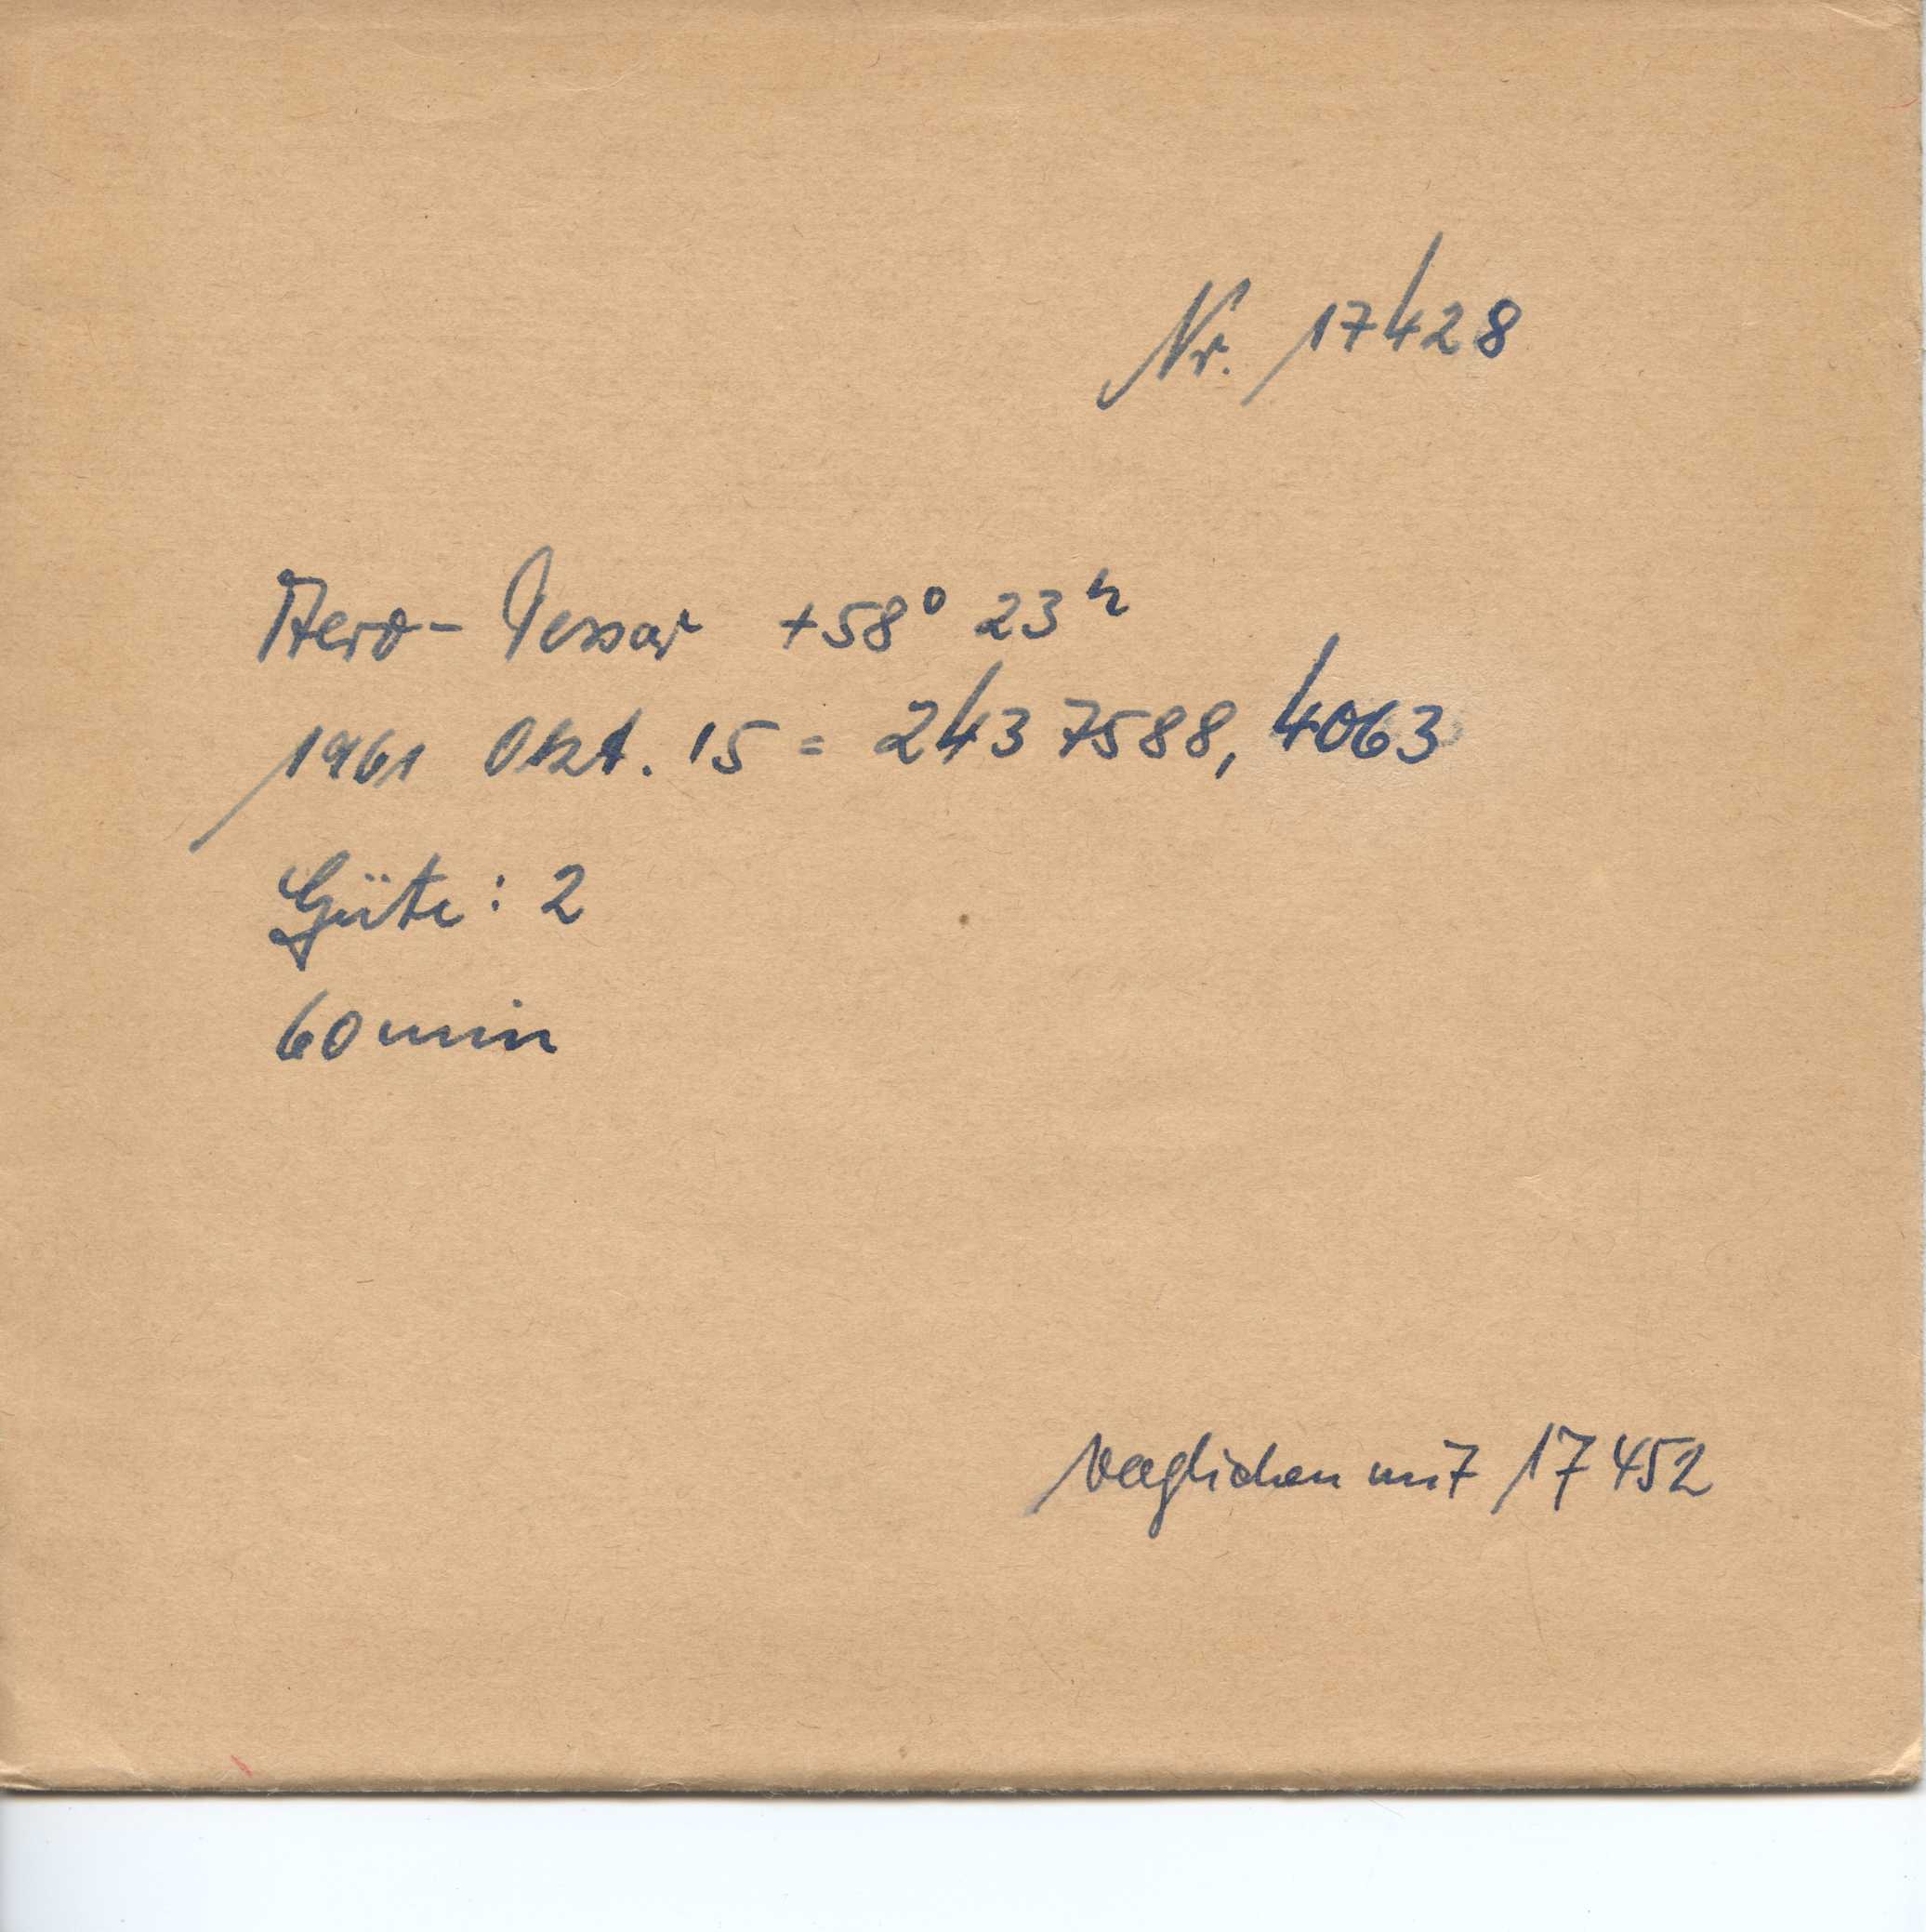 Nr. 17428
Aero-Tessar +58° 23ʰ
1961 Okt. 15 = 243 7588, 4063
Güte: 2
60 min
verglichen mit 17 452